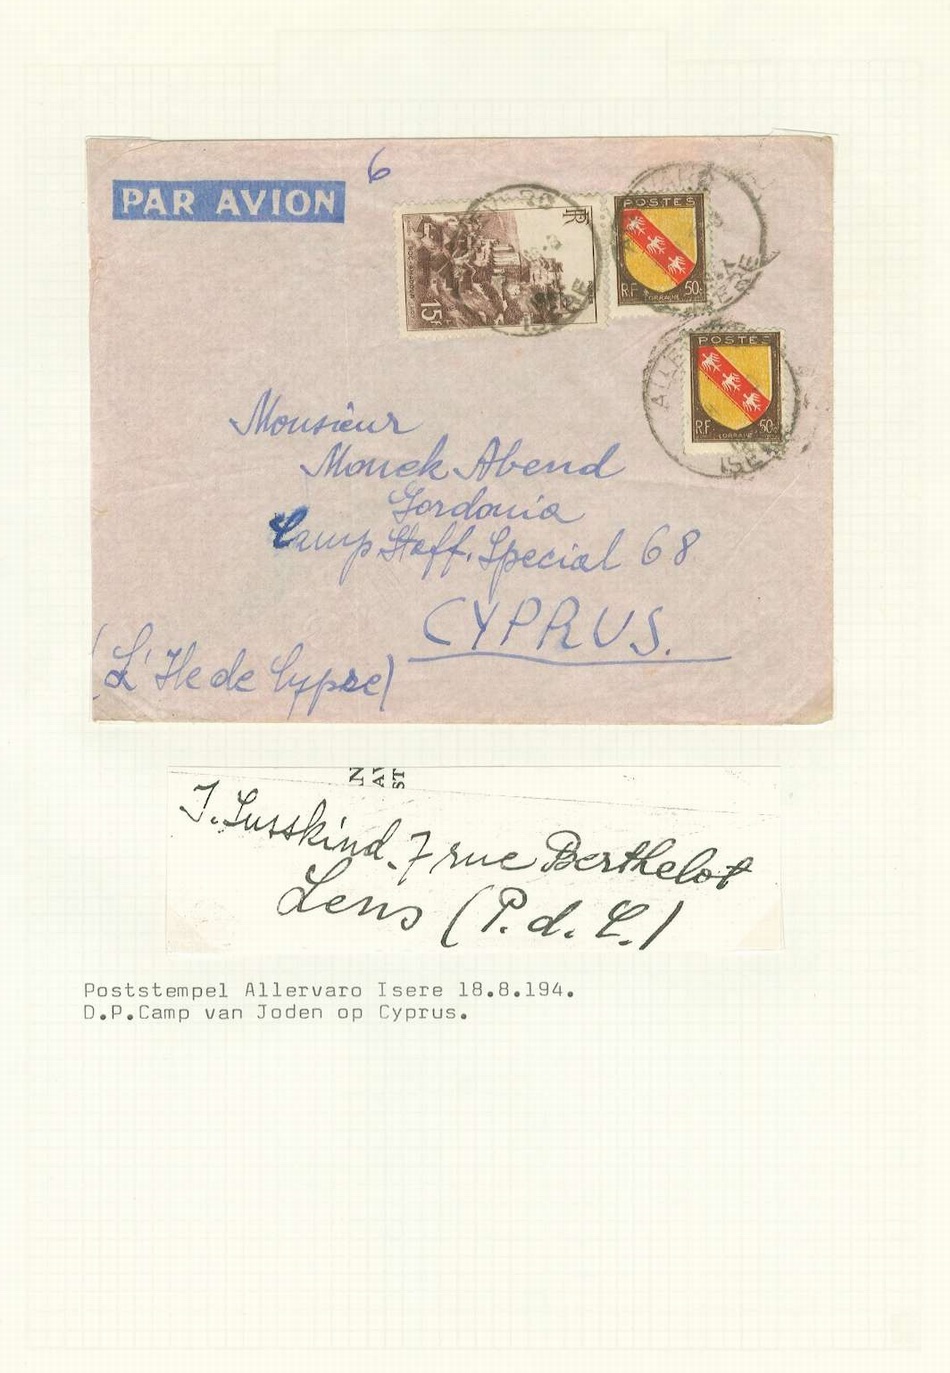 6
PAR AVION
RF
15F
POSTES
RF LORRAINE 50c
POSTES
RF LORRAINE 50c
ISERE
ISERE
Monsieur
Monek Abend
Gordonia
Camp Staff. Special 68
CYPRUS.
(L'Ile de Cypre)
J. Susskind. 7 rue Berthelot
Lens (P. d. C.)
Poststempel Allervaro Isere 18.8.194.
D.P.Camp van Joden op Cyprus.